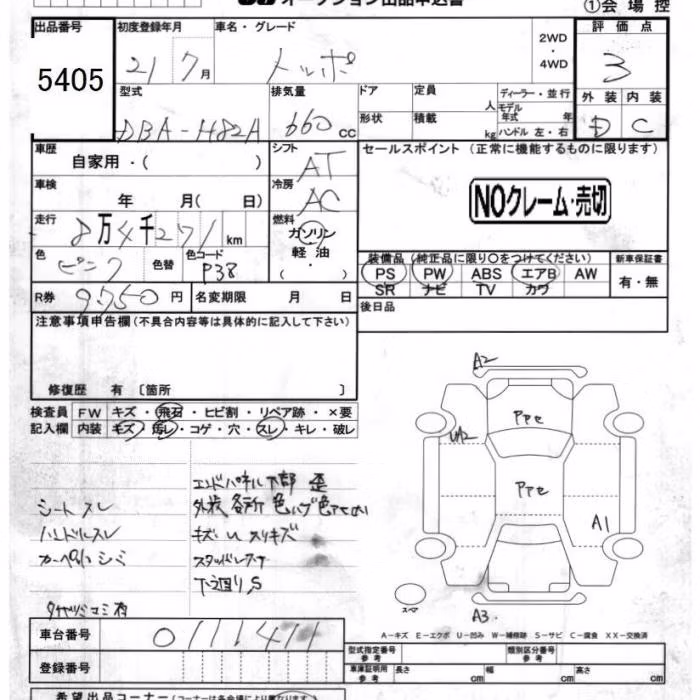 オークション出品申込書
①会場控
出品番号
5405
初度登録年月
21 7月
車名・グレード
トッポ
2WD
・
4WD
評価点
3
外装 内装
D C
型式
DBA-H82A
排気量
660 cc
ドア
形状
定員
人
積載
kg
ディーラー・並行
モデル年式 年
ハンドル 左・右
車歴
自家用・( )
シフト
AT
セールスポイント(正常に機能するものに限ります)
NOクレーム・売切
車検
年 月( 日)
冷房
AC
走行
8万4千271km
燃料
ガソリン
軽油
( ・ )
色
ピンク
色替
色コード
P38
装備品(純正品に限り○をつけてください)
PS PW ABS エアB AW
SR ナビ TV カワ
新車保証書
有・無
R券
9750円
名変期限 月 日
後日品
注意事項申告欄(不具合内容等は具体的に記入して下さい)
修復歴 有〔箇所 〕
検査員記入欄
FW キズ・飛石・ヒビ割・リペア跡・×要
内装 キズ・汚レ・コゲ・穴・スレ・キレ・破レ
エンドパネル下部 歪
外装各所 色ハゲ色アセ
シートスレ
ハンドルスレ
カーペットシミ
キズ U スリキズ
スタッドレスタイヤ
下廻りS
タイヤツミコミ有
A2
UA2
PPC
PPC
A1
A3
スペア
A―キズ E―エクボ U―凹み W―補修跡 S―サビ C―腐食 XX―交換済
車台番号
0111411
登録番号
型式指定番号
参考
類別区分番号
参考
車庫証明用
参考
長さ cm
幅 cm
高さ cm
希望出品コーナー(コーナーは各会場により異なります)